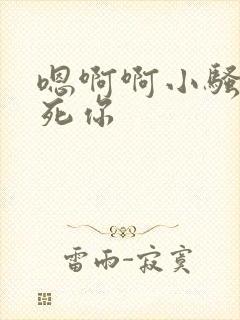 嗯啊啊小骚
死你
雷雨-寂寞